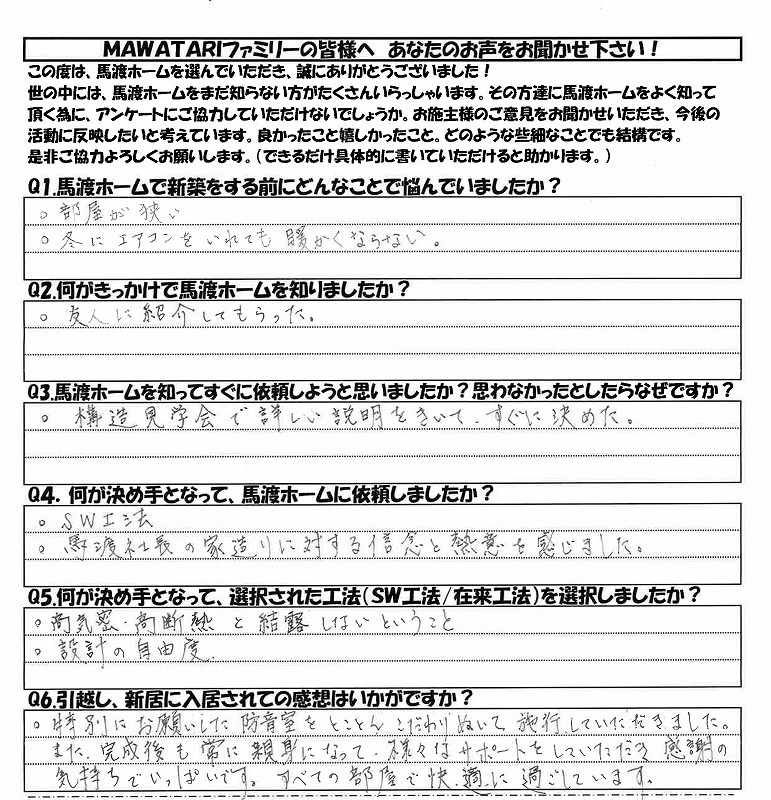 MAWATARIファミリーの皆様へ あなたのお声をお聞かせ下さい!
この度は、馬渡ホームを選んでいただき、誠にありがとうございました!
世の中には、馬渡ホームをまだ知らない方がたくさんいらっしゃいます。その方達に馬渡ホームをよく知って
頂く為に、アンケートにご協力していただけないでしょうか。お施主様のご意見をお聞かせいただき、今後の
活動に反映したいと考えています。良かったこと嬉しかったこと。どのような些細なことでも結構です。
是非ご協力よろしくお願いします。(できるだけ具体的に書いていただけると助かります。)
Q1.馬渡ホームで新築をする前にどんなことで悩んでいましたか?
○ 部屋が狭い
○ 冬にエアコンをいれても暖かくならない。
Q2.何がきっかけで馬渡ホームを知りましたか?
○ 友人に紹介してもらった。
Q3.馬渡ホームを知ってすぐに依頼しようと思いましたか?思わなかったとしたらなぜですか?
○ 構造見学会で詳しい説明をきいて、すぐに決めた。
Q4. 何が決め手となって、馬渡ホームに依頼しましたか?
○ SW工法
○ 馬渡社長の家造りに対する信念と熱意を感じました。
Q5.何が決め手となって、選択された工法(SW工法/在来工法)を選択しましたか?
○ 高気密・高断熱と結露しないということ
○ 設計の自由度.
Q6.引越し、新居に入居されての感想はいかがですか?
○ 特別にお願いした防音室をとことんこだわりぬいて施行していただきました。
また、完成後も常に親身になって、様々なサポートをしていただき感謝の
気持ちでいっぱいです。すべての部屋で快適に過ごしています。